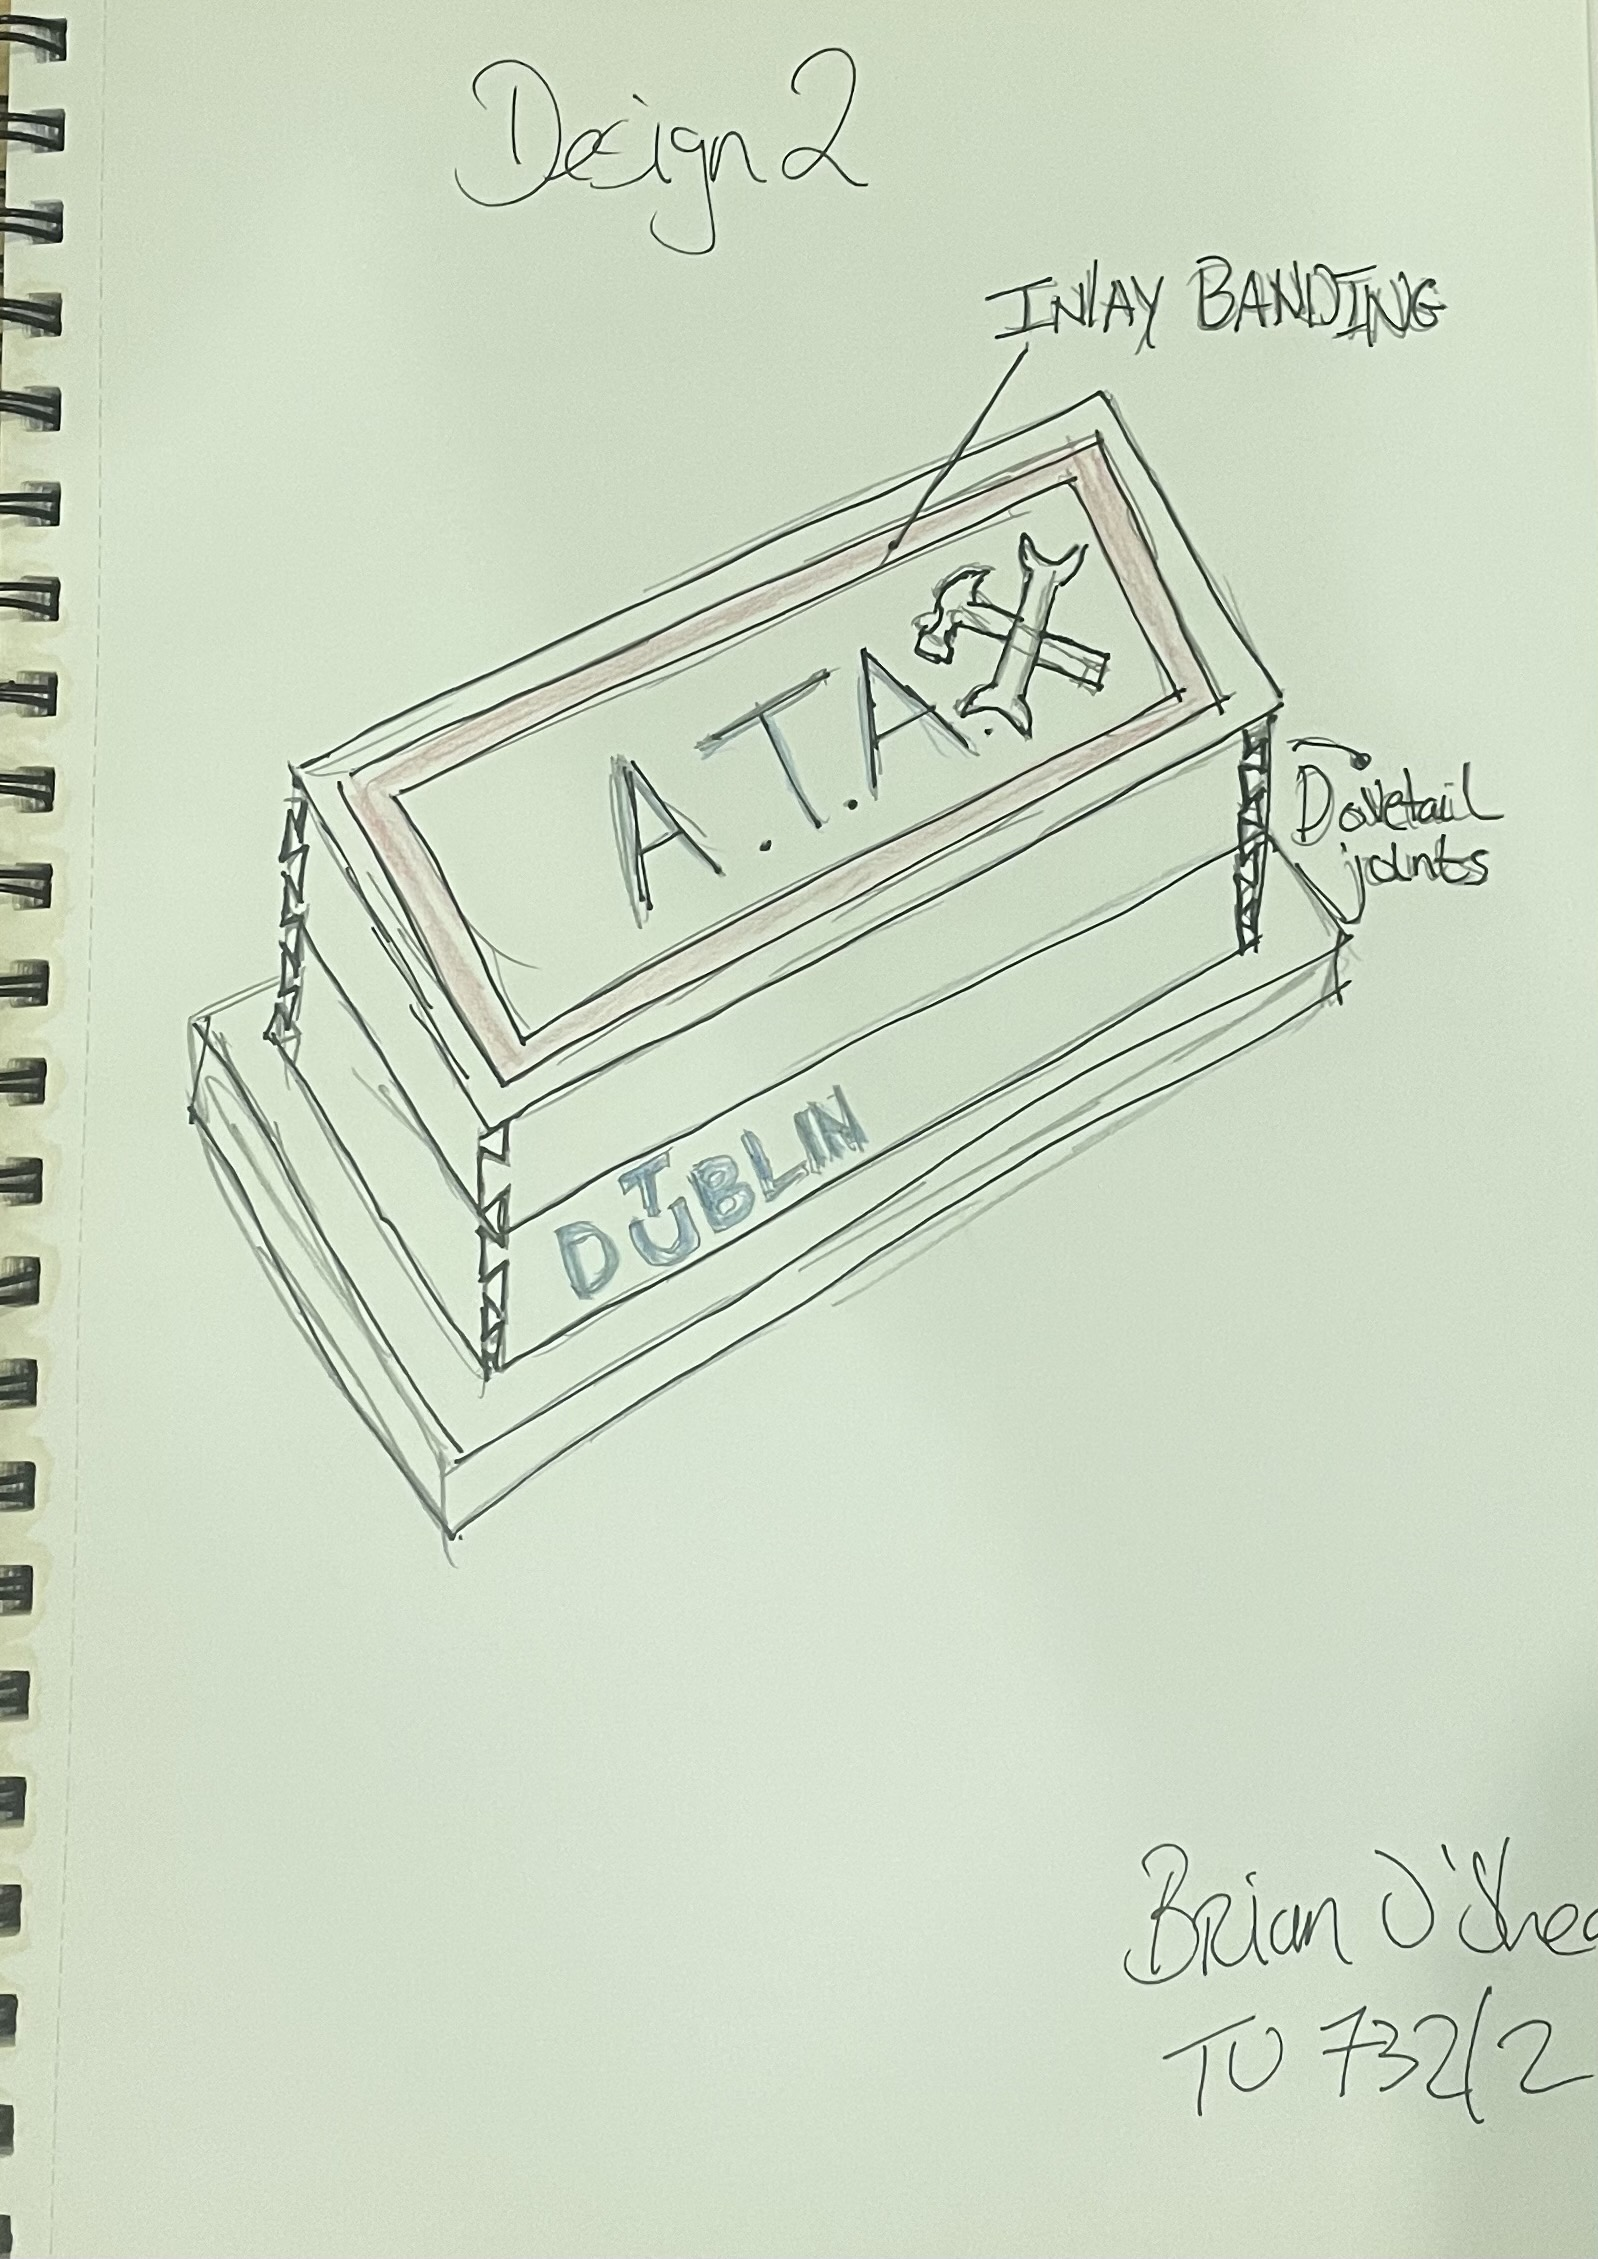 Design 2
INLAY BANDING
A.T.A.
Dovetail
joints
T
DUBLIN
Brian O'Shea
TU 732/2